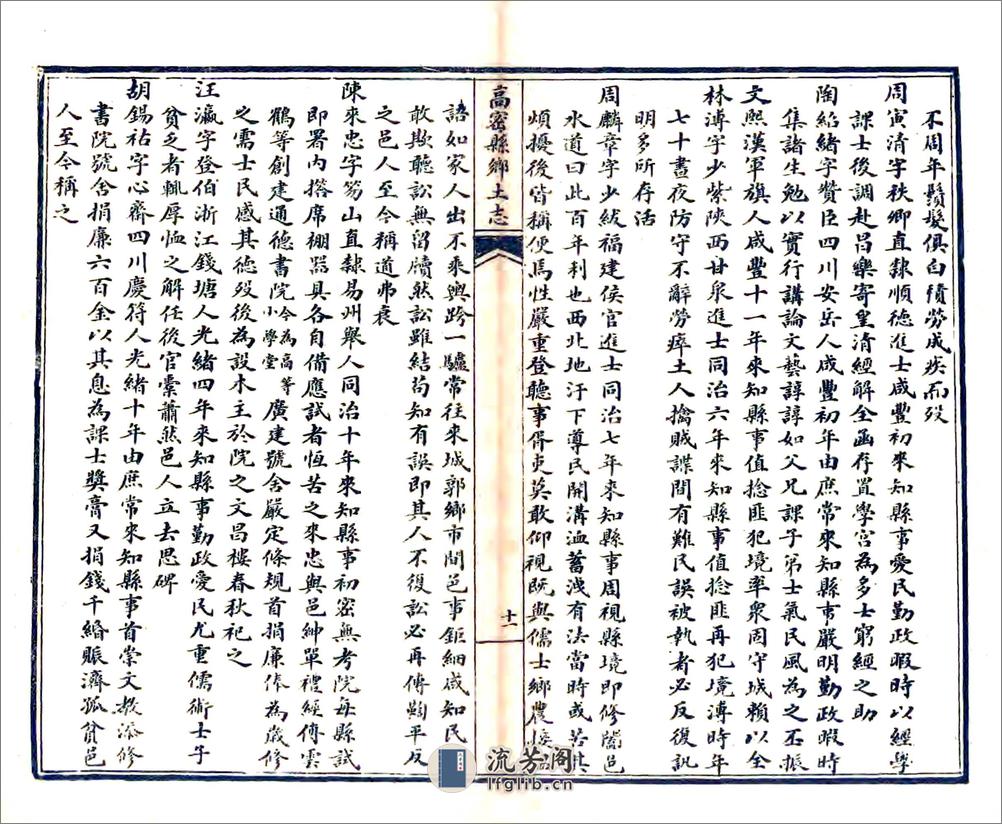 不周年鬚髮俱白積勞成疾而歿
周寅清字秋卿直隸順德進士咸豐初來知縣事愛民勤政暇時以經學
課士後調赴昌樂寄皇清經解全函存置學宮為多士窮經之助
陶紹緒字贊臣四川安岳人咸豐初年由庶常來知縣事嚴明勤政暇時
集諸生勉以實行講論文藝諄諄如父兄課子弟士氣民風為之丕振
文熙漢軍旗人咸豐十一年來知縣事值捻匪犯境率眾固守城賴以全
林溥字少紫陝西甘泉進士同治六年來知縣事值捻匪再犯境溥時年
七十晝夜防守不辭勞瘁土人擒賊諜間有難民誤被執者必反復訊
明多所存活
周麟章字少紱福建侯官進士同治七年來知縣事周視縣境即修闔邑
水道曰此百年利也西北地汙下導民開溝洫蓄洩有法當時或苦其
煩擾後皆稱便焉性嚴重登聽事胥吏莫敢仰視既與儒士鄉農接
高密縣鄉土志
十一
語如家人出不乘輿跨一驢常往來城郭鄉市間邑事鉅細咸知民
敢欺聽訟無留牘然訟雖結苟知有誤即其人不復訟必再傳鞫平反
之邑人至今稱道弗衰
陳來忠字笏山直隸易州舉人同治十年來知縣事初密無考院每縣試
即署內搭席棚器具各自備應試者恆苦之來忠與邑紳單禮經傳雲
鶴等創建通德書院今為高等小學堂廣建號舍嚴定條規首捐廉俸為歲修
之需士民感其德歿後為設木主於院之文昌樓春秋祀之
汪瀛字登伯浙江錢塘人光緒四年來知縣事勤政愛民尤重儒術士子
貧乏者輒厚恤之解任後官橐蕭然邑人立去思碑
胡錫祜字心齋四川慶符人光緒十年由庶常來知縣事首崇文教添修
書院號舍捐廉六百金以其息為課士獎膏又捐錢千緡賑濟孤貧邑
人至今稱之
流芳阁
lfglib.cn